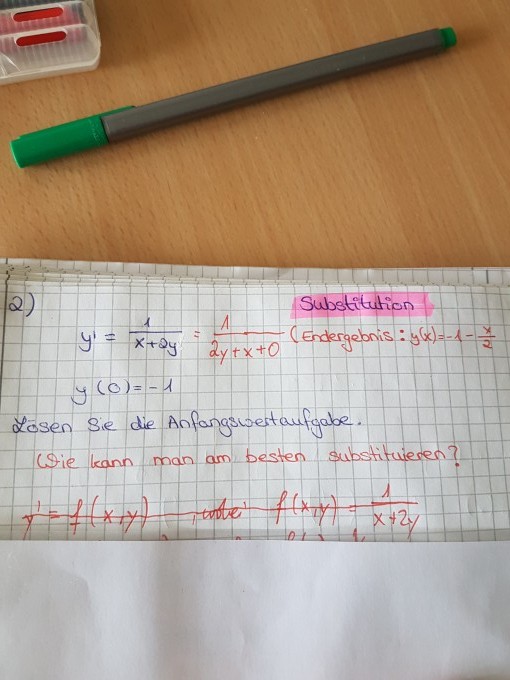 2)
Substitution
y' = 1/(x+2y) = 1/(2y+x+0) (Endergebnis: y(x)=-1-x/2
y(0)=-1
Lösen Sie die Anfangswertaufgabe.
Wie kann man am besten substituieren?
y' = f(x,y) , wobei f(x,y) = 1/(x+2y)